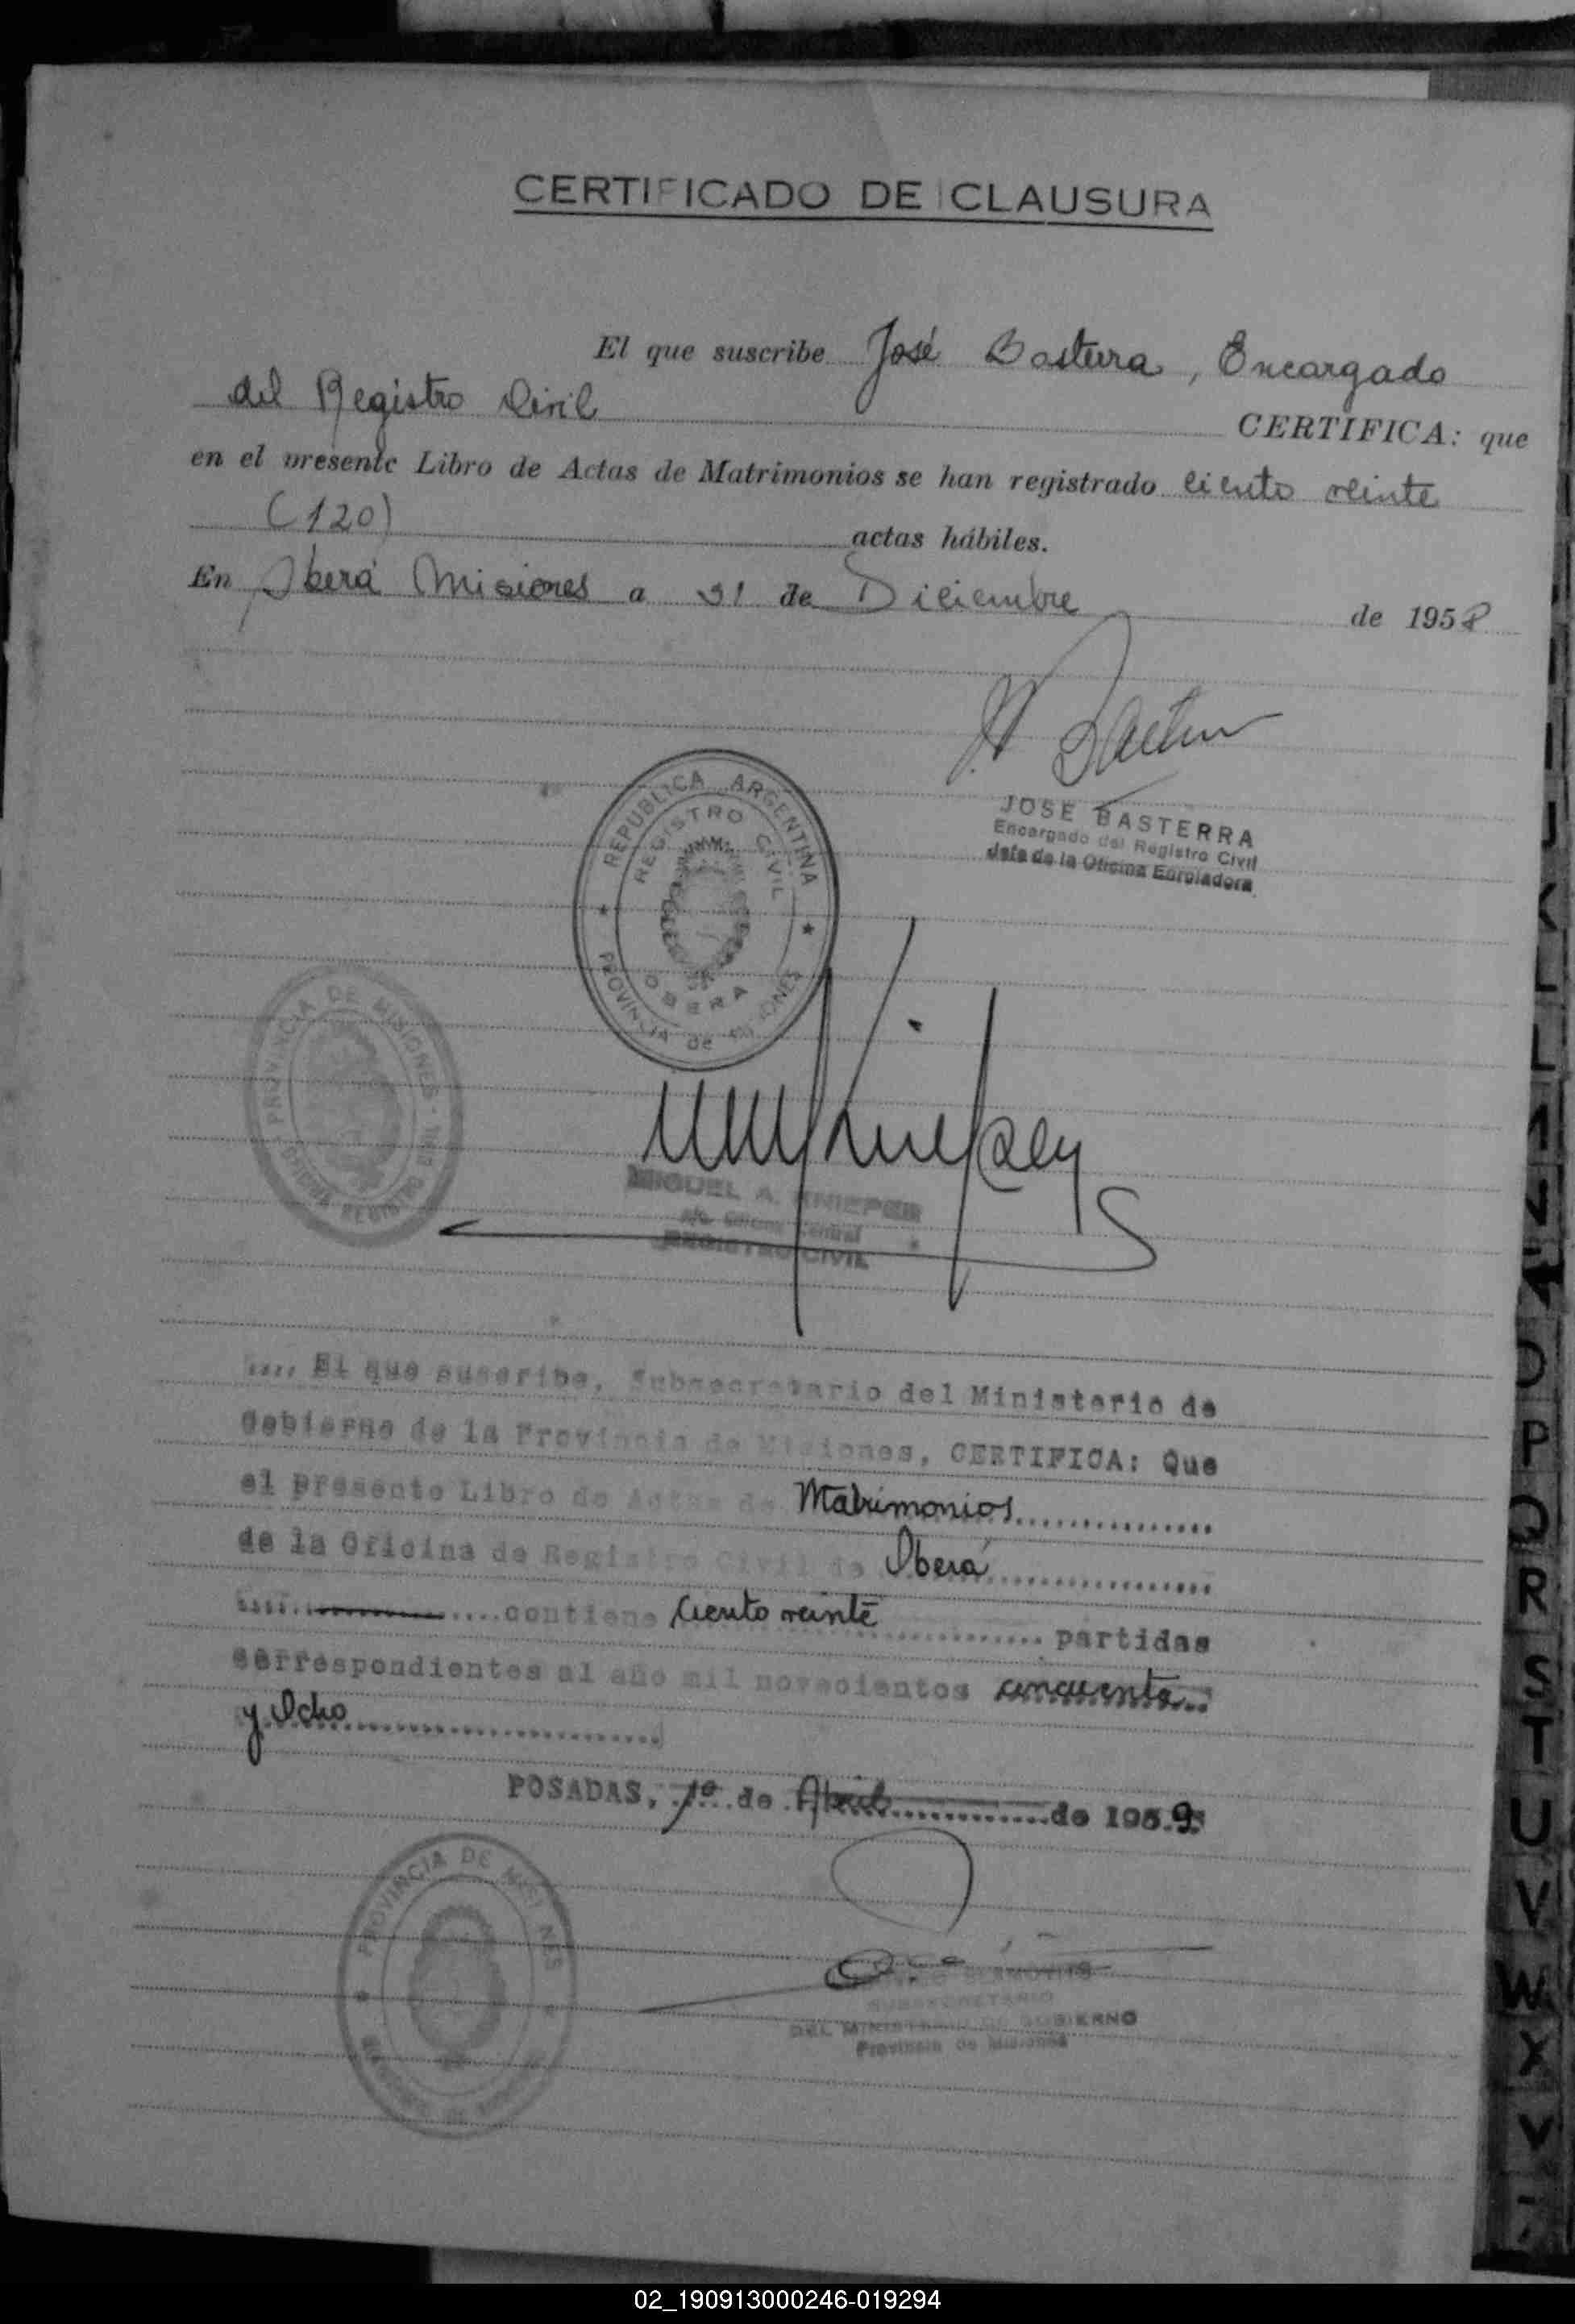 CERTIFICADO DE CLAUSURA
El que suscribe José Basterra, Encargado
del Registro Civil CERTIFICA: que
en el presente Libro de Actas de Matrimonios se han registrado ciento veinte
(120) actas hábiles.
En Oberá Misiones a 31 de Diciembre de 1958
REPUBLICA ARGENTINA
REGISTRO CIVIL
OBERA
PROVINCIA de MISIONES
JOSE BASTERRA
Encargado del Registro Civil
Jefe de la Oficina Enroladora
PROVINCIA DE MISIONES
REGISTRO
MIGUEL A. KNIEPER
Oficina Central
REGISTRO CIVIL
.... El que suscribe, Subsecretario del Ministerio de
Gobierno de la Provincia de Misiones, CERTIFICA: Que
el presente Libro de Actas de Matrimonios...............
de la Oficina de Registro Civil de Oberá
contiene Ciento veinte partidas
correspondientes al año mil novecientos cincuenta
y Ocho
POSADAS, 1º de Abril de 1959
PROVINCIA DE MISIONES
SUBSECRETARIO
DEL MINISTERIO DE GOBIERNO
Provincia de Misiones
J
K
L
L
M
N
O
P
Q
R
S
T
U
V
W
X
Y
02_190913000246-019294